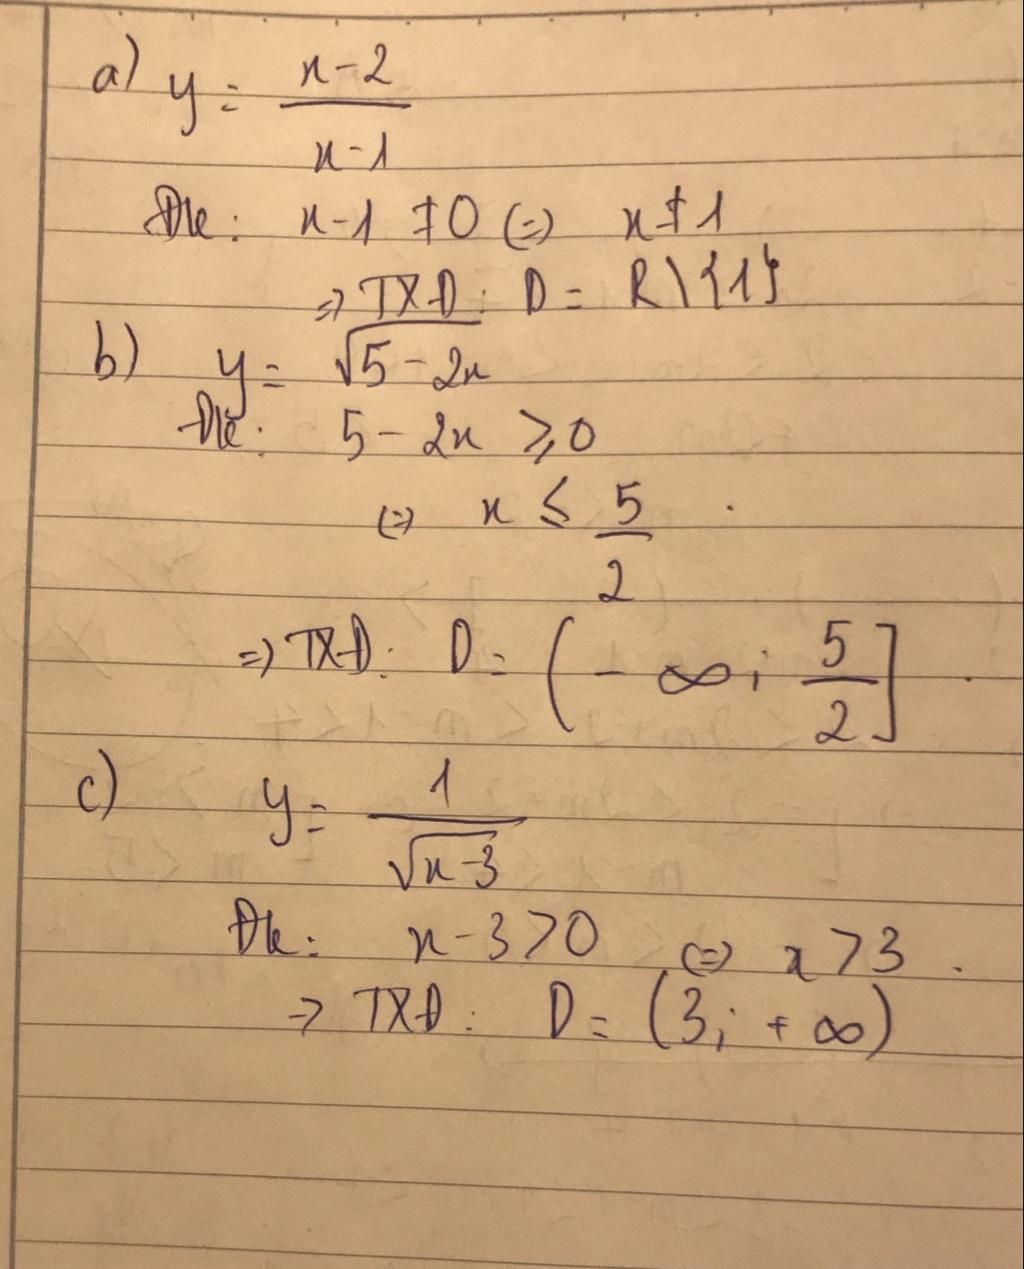 a) y = \frac{x-2}{x-1}
Đk: x-1 ≠ 0 (=) x ≠ 1
=> TXĐ: D = R\{1}
b) y = √(5-2x)
Đk: 5-2x ≥ 0
(=) x ≤ \frac{5}{2}.
=> TXĐ: D = (-∞; \frac{5}{2}].
c) y = \frac{1}{√(x-3)}
Đk: x-3 > 0 (=) x > 3.
=> TXĐ: D = (3; +∞)